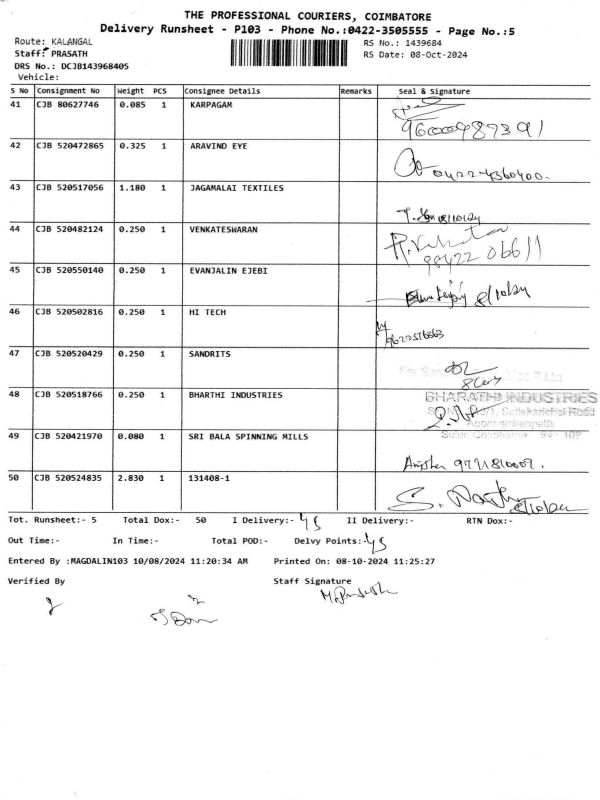 THE PROFESSIONAL COURIERS, COIMBATORE
Delivery Runsheet - P103 - Phone No.:0422-3505555 - Page No.:5
Route: KALANGAL RS No.: 1439684
Staff: PRASATH RS Date: 08-Oct-2024
DRS No.: DCJB143968405
Vehicle:
S No Consignment No Weight PCS Consignee Details Remarks Seal & Signature
41 CJB 80627746 0.085 1 KARPAGAM
42 CJB 520472865 0.325 1 ARAVIND EYE
43 CJB 520517056 1.180 1 JAGAMALAI TEXTILES
44 CJB 520482124 0.250 1 VENKATESWARAN
45 CJB 520550140 0.250 1 EVANJALIN EJEBI
46 CJB 520502816 0.250 1 HI TECH
47 CJB 520520429 0.250 1 SANDRITS
48 CJB 520518766 0.250 1 BHARTHI INDUSTRIES BHARATHI INDUSTRIES
49 CJB 520421970 0.080 1 SRI BALA SPINNING MILLS
50 CJB 520524835 2.830 1 131408-1
Tot. Runsheet:- 5 Total Dox:- 50 I Delivery:- 45 II Delivery:- RTN Dox:-
Out Time:- In Time:- Total POD:- Delvy Points:- 45
Entered By :MAGDALIN103 10/08/2024 11:20:34 AM Printed On: 08-10-2024 11:25:27
Verified By Staff Signature